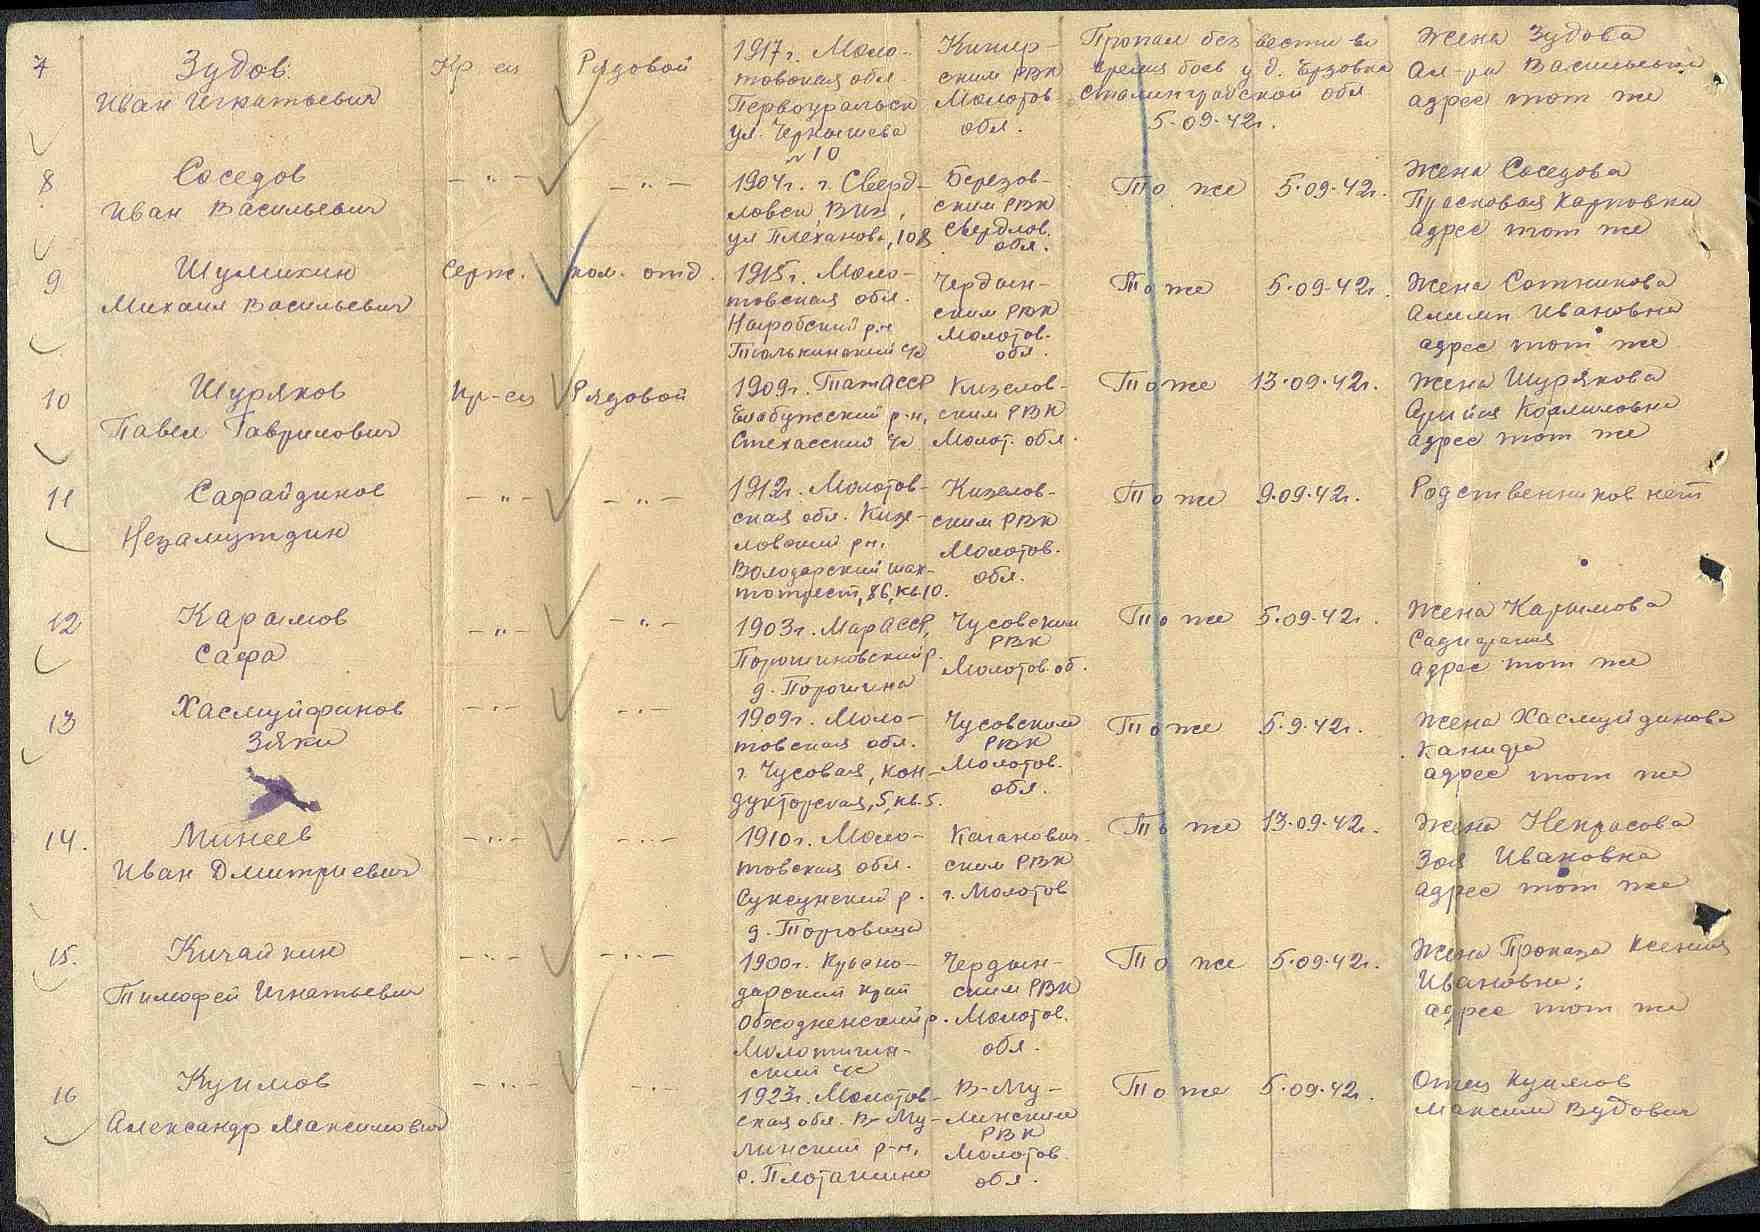 7
Зудов
Иван Игнатьевич
Кр-ец
Рядовой
1917г. Моло-
товская обл.
Первоуральск
ул. Чернышева
№ 10
Кишер-
ским РВК
Молотов
обл.
Пропал без вести во
время боев у д. Ерзовка
Сталинградской обл
5.09.42г.
Жена Зудова
Ал-ра Васильевна
адрес тот же
8
Соседов
Иван Васильевич
— " —
— " —
1904г. г. Сверд-
ловск, ВИЗ,
ул Плеханова, 108
Березов-
ским РВК
Свердлов.
обл.
То же
5.09.42г.
Жена Соседова
Прасковья Карповна
адрес тот же
9
Шумихин
Михаил Васильевич
Серж.
ком. отд.
1915г. Моло-
товская обл.
Ныробский р-н
Тюлькинский с/с
Чердын-
ским РВК
Молотов.
обл.
То же
5.09.42г.
Жена Сотникова
Ивановна
адрес тот же
10
Шуряков
Павел Гаврилович
Кр-ец
Рядовой
1909г. ТатАССР
Елабужский р-н,
Кизелов-
ским РВК
Молот. обл.
То же
13.09.42г.
Жена Шурякова
адрес тот же
11
Сафайдинов
Незамутдин
— " —
— " —
1912г. Молотов-
ская обл. Кизе-
ловский р-н,
Володарский шах-
тотрест, 86, кв 10.
Кизелов-
ским РВК
Молотов.
обл.
То же
9.09.42г.
Родственников нет
12
Карамов
Сафа
— " —
— " —
1903г. МарАССР,
Порошиновский р.
д. Порошина
Чусовским
РВК
Молотов. об.
То же
5.09.42г.
Жена Карымова
адрес тот же
13
Хасмуйфинов
Зяки
— " —
— " —
1909г. Моло-
товская обл.
г. Чусовая, Кон-
дукторская, 5, кв. 5.
Чусовским
РВК
Молотов.
обл.
То же
5.9.42г.
Жена Хасмуйдинова
Канифа
адрес тот же
14.
Минеев
Иван Дмитриевич
— " —
— " —
1910г. Моло-
товская обл.
Суксунский р.
д. Торговище
Каганович.
ским РВК
г. Молотов
То же
13.09.42г.
Жена Некрасова
Зоя Ивановна
адрес тот же
15.
Кичайкин
Тимофей Игнатьевич
— " —
— " —
1900г. Красно-
дарский край
р.
ский с/с
Чердын-
ским РВК
Молотов.
обл.
То же
5.09.42г.
Жена Проказа Ксения
Ивановна;
адрес тот же
16
Куимов
Александр Максимович
— " —
— " —
1923г. Молотов-
ская обл. В-Му-
линский р-н,
с. Плоташино
В-Му-
линским
РВК
Молотов.
обл.
То же
5.09.42г.
Отец Куимов
Максим Вудович